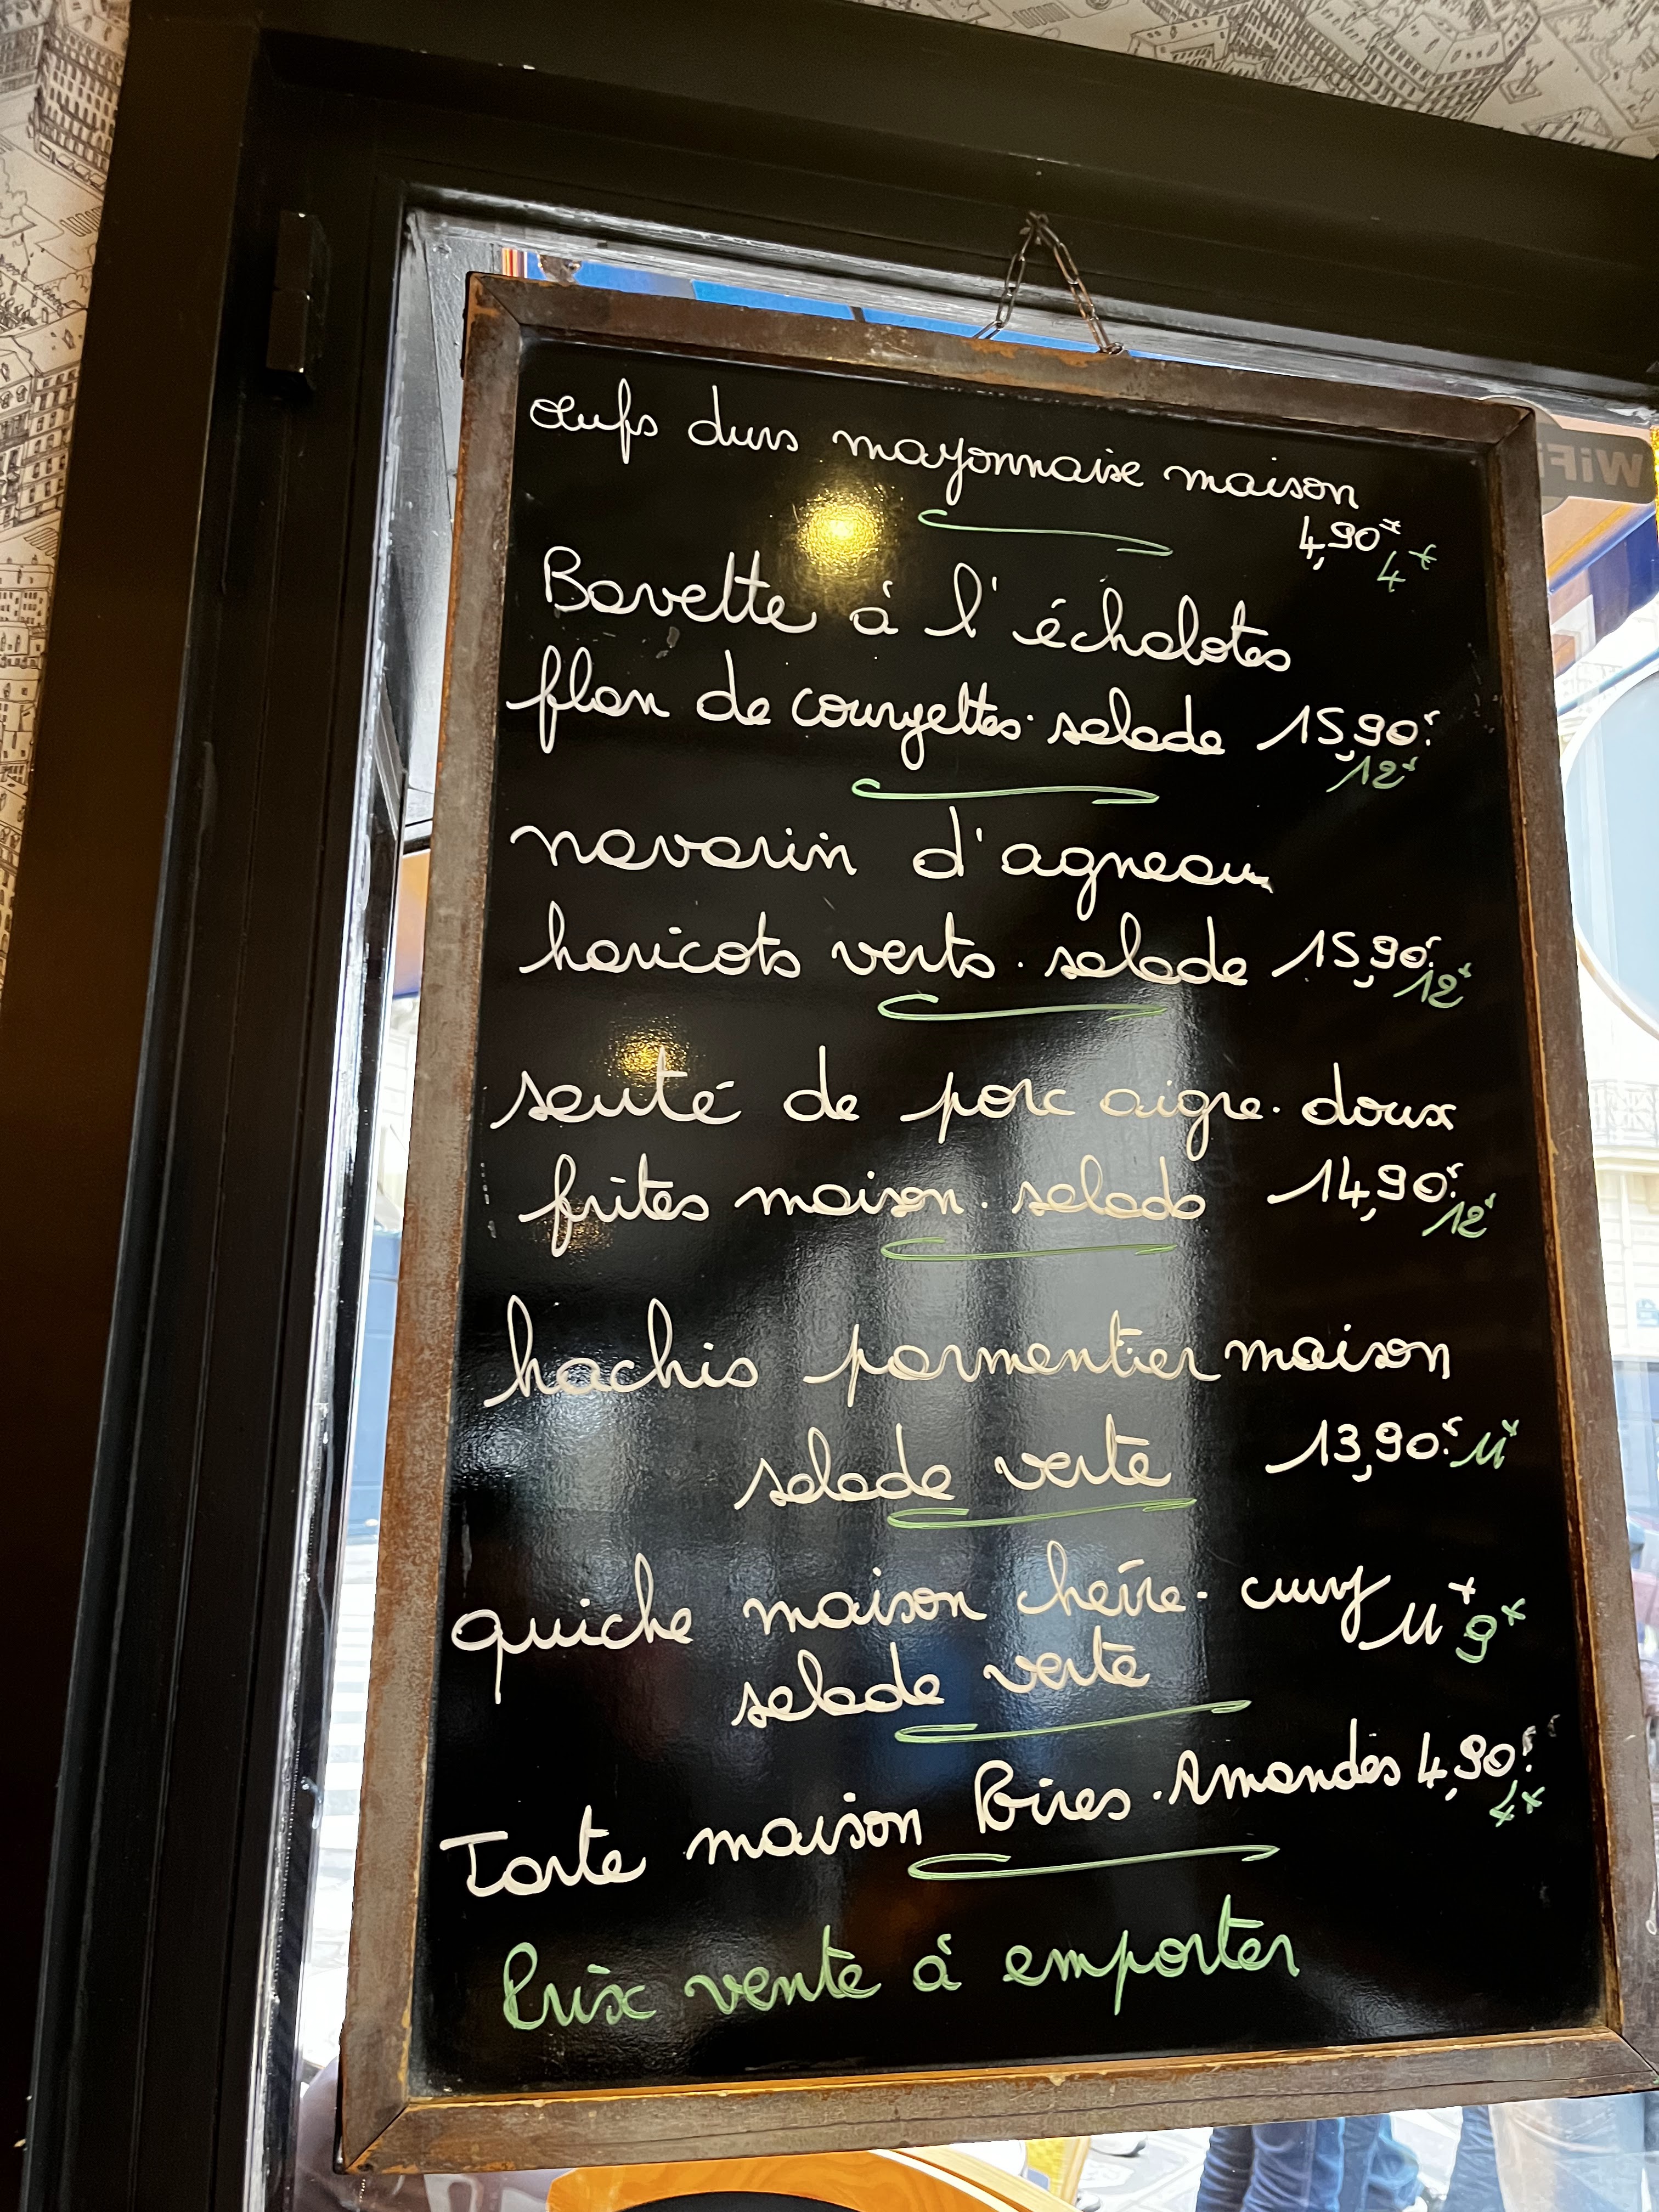 œufs durs mayonnaise maison
4,90€ 4€
Bavette à l'échalotes
flan de courgettes. salade 15,90€
12€
navarin d'agneau
haricots verts. salade 15,90€
12€
sauté de porc aigre. doux
frites maison. salade 14,90€
12€
hachis parmentier maison
salade verte 13,90€ 11€
quiche maison chèvre. curry 11€ 9€
salade verte
Tarte maison Poires. Amandes 4,90€
4€
Prix vente à emporter
WiFi